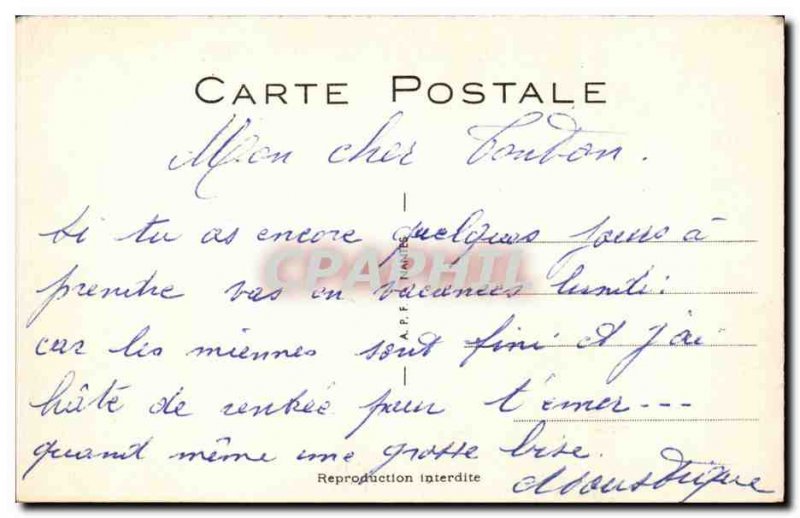 CARTE POSTALE
Mon cher Toudon.
Si tu as encore quelques jours à
prendre vas en vacances lundi:
car les miennes sont fini et j'ai
hâte de rentrée pour t'emer---
quand même une grosse bise.
Moustique
Reproduction interdite
A.P.F. NANTES
CPAPHIL